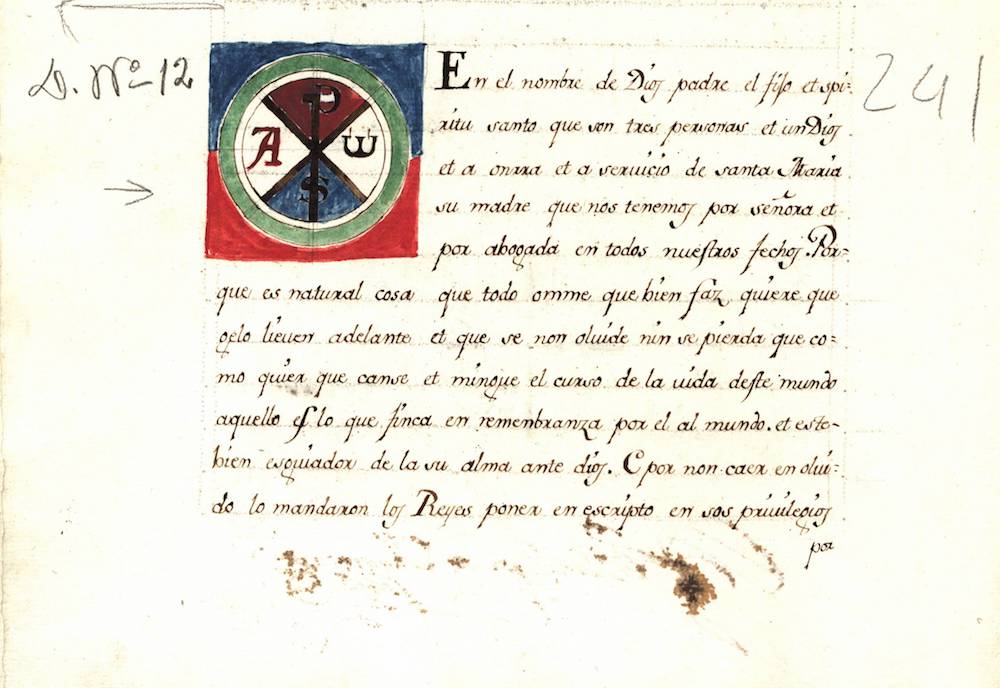 D. Nº 12
241
P
A ω
S
En el nombre de Dios padre el fijo et spi-
ritu santo que son tres personas et un Dios
et a onrra et a seruicio de santa Maria
su madre que nos tenemos por señora et
por abogada en todos nuestros fechos. Por-
que es natural cosa que todo omme que bien faz, quiere que
gelo lieven adelante et que se non oluide nin se pierda que co=
mo quier que canse et mingue el curso de la uida deste mundo
aquello es lo que finca en remembranza por el al mundo. et este-
bien esguiador de la su alma ante dios. C por non caer en olui-
do lo mandaron los Reyes poner en escripto en sos priuilegios
por